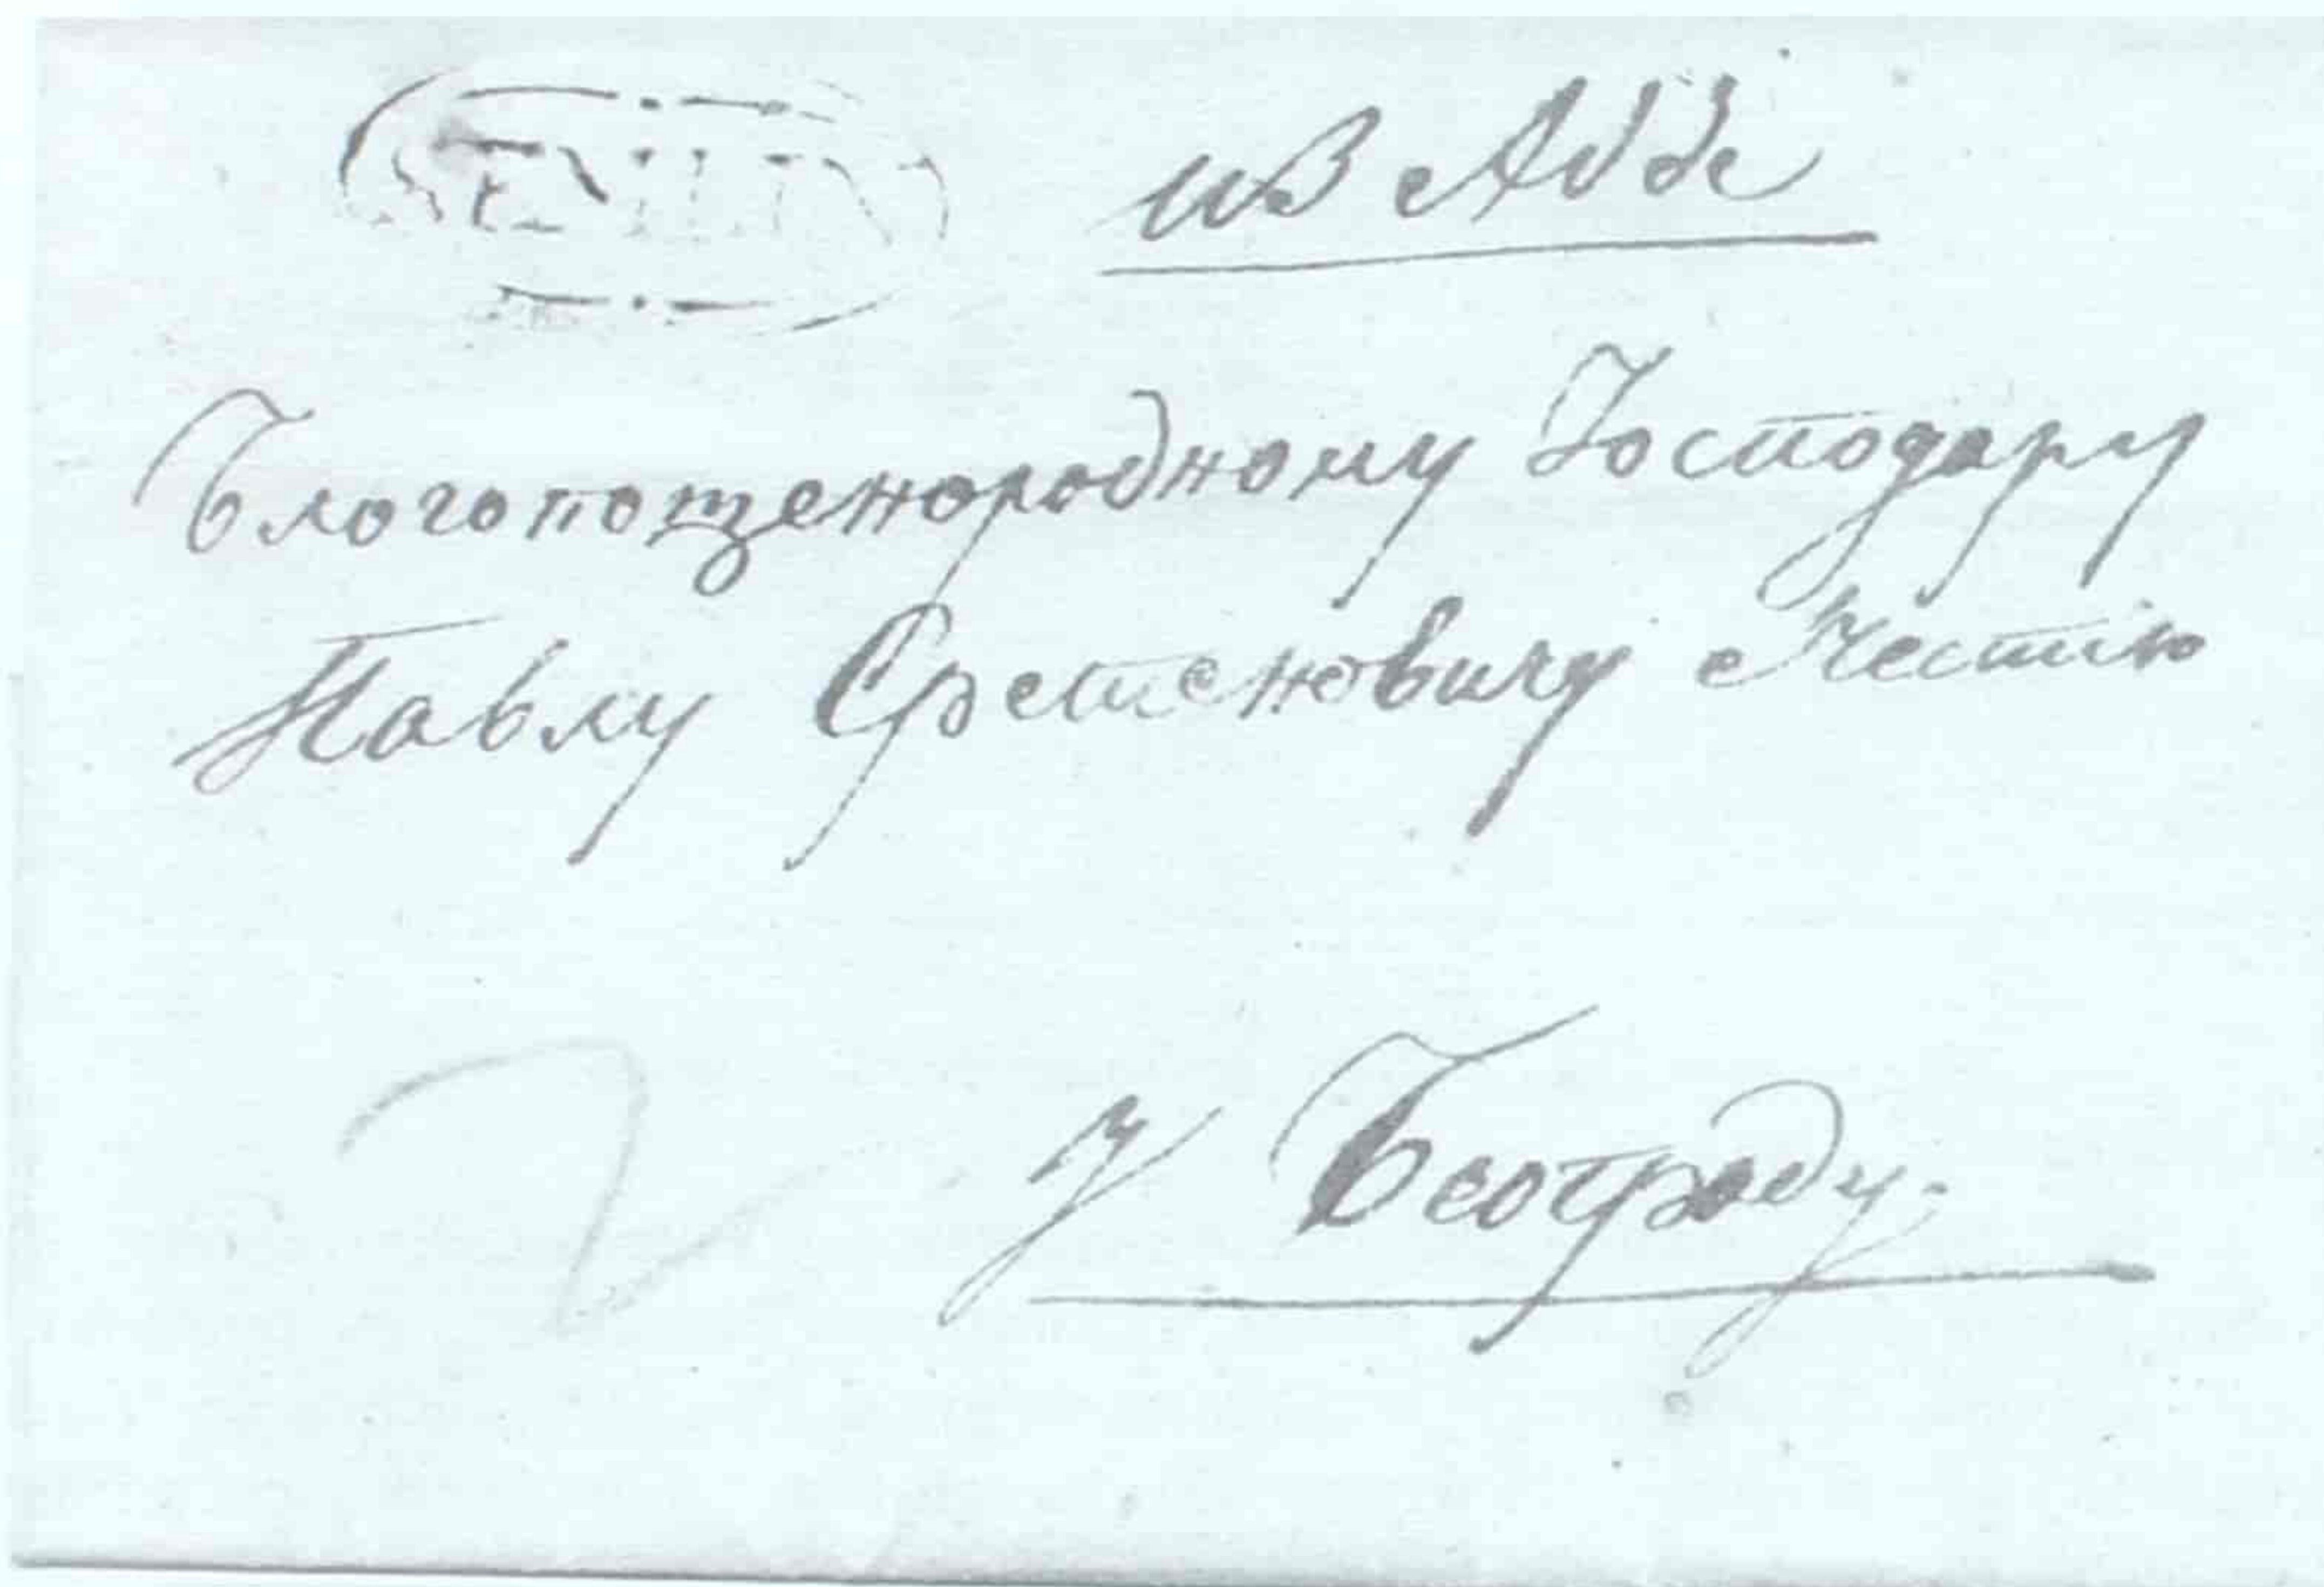 SEMLIN
из
Благопощенородному Господару
Павлу Сретеновичу Честію
2
у Београду.